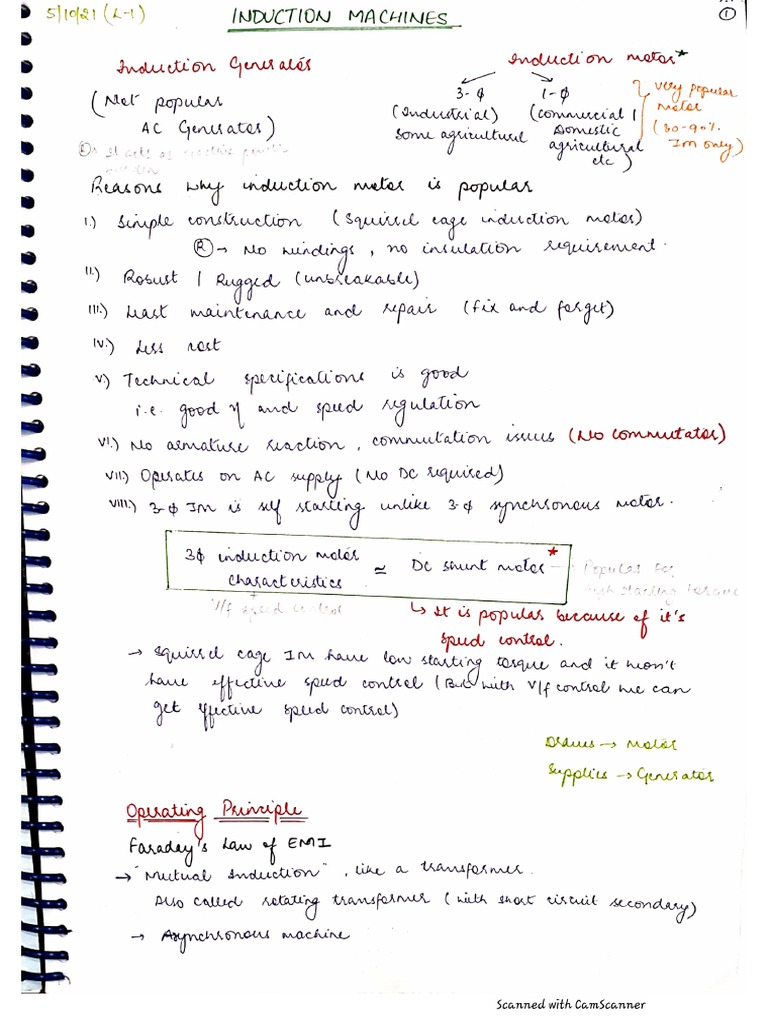 5/10/21 (L-1)
INDUCTION MACHINES
1
Induction Generators
Induction motor*
(Not popular
AC Generator)
3-ϕ
(Industrial)
some agricultural
1-ϕ
(commercial /
Domestic
agricultural
etc)
very popular
motor
IM only)
Or It acts as reactive
Reasons why induction motor is popular
I.) Simple construction (Squirrel cage induction motor)
R → No windings, no insulation requirement.
II.) Robust / Rugged (unbreakable)
III.) Least maintenance and repair (fix and forget)
IV.) Less cost
V) Technical specifications is good
i.e. good η and speed regulation
VI.) No armature reaction, commutation issues (No commutator)
VII.) Operates on AC supply (No DC required)
VIII.) 3-ϕ IM is self starting unlike 3-ϕ synchronous motor.
3ϕ induction motor
characteristics
≃ DC shunt motor*
Popular for
high starting torque
V/f speed control
↳ It is popular because of it's
speed control.
→ Squirrel cage IM have low starting torque and it won't
have effective speed control (But with V/f control we can
get effective speed control)
Draws → Motor
Supplies → Generator
Operating Principle
Faraday's Law of EMI
→ "Mutual Induction", like a transformer.
Also called rotating transformer (with short circuit secondary)
→ Asynchronous machine
Scanned with CamScanner